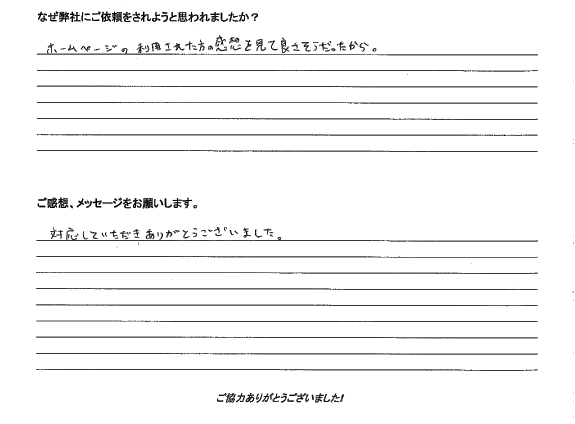 なぜ弊社にご依頼をされようと思われましたか？
ホームページの利用された方の感想を見て良さそうだったから。
ご感想、メッセージをお願いします。
対応していただきありがとうございました。
ご協力ありがとうございました!